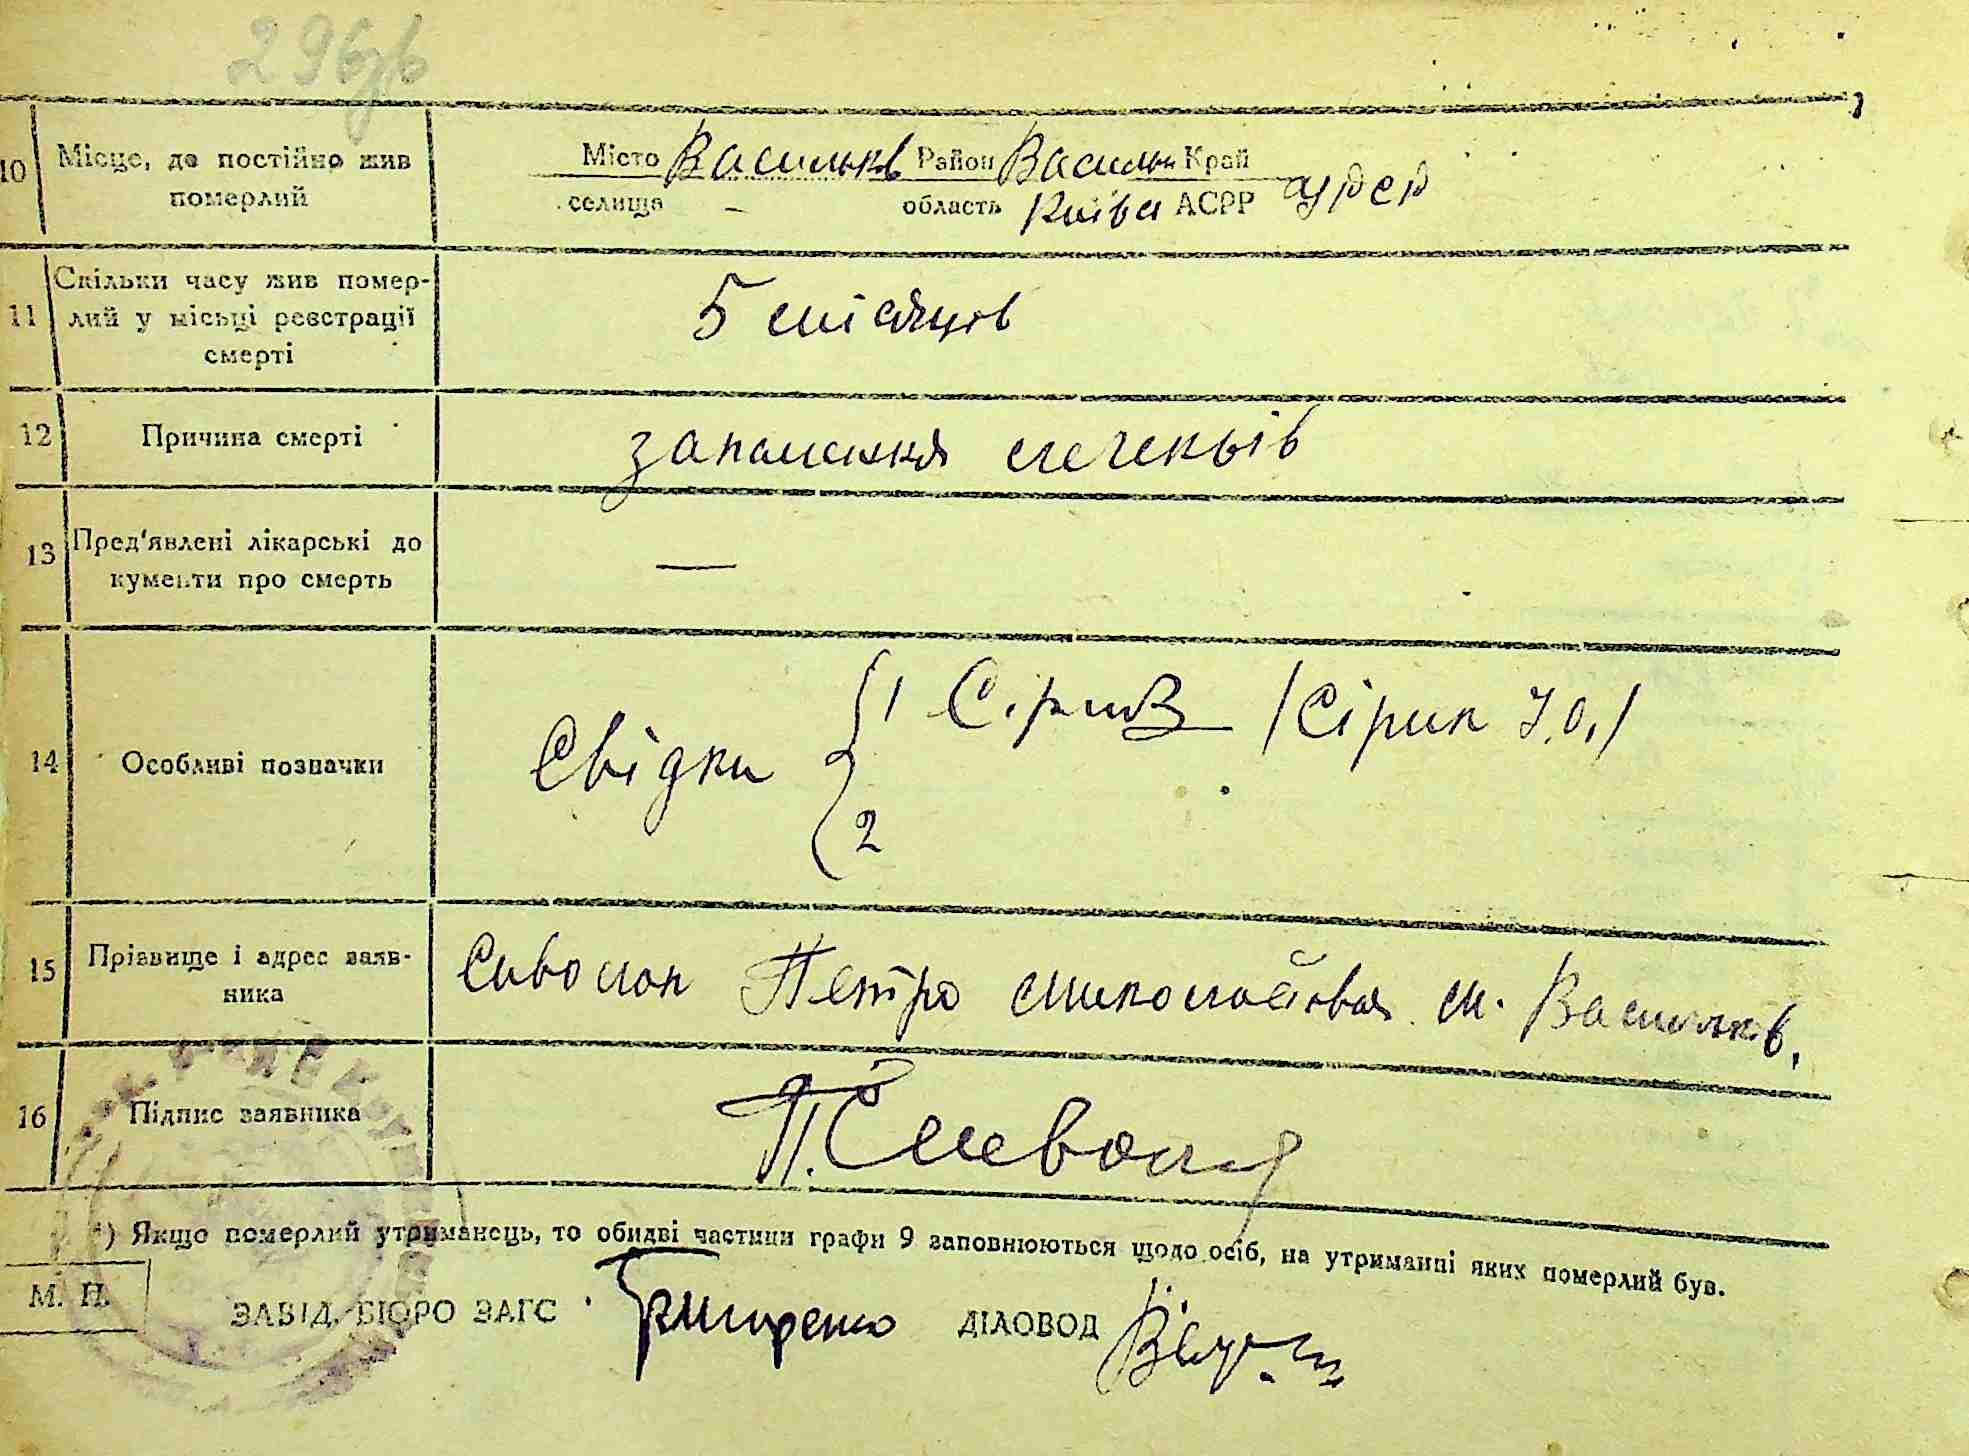 296зв
10 Місце, де постійно жив померлий
Місто Васильків Район Васильк Край
селища – область Київа АСРР УРСР
11 Скільки часу жив помер-
лий у місьці реєстрації
смерті
5 місяцов
12 Причина смерті
запалення легеньів
13 Пред'явлені лікарські до
кументи про смерть
—
14 Особливі позначки
Свідки { 1 Сірик /Сірик І.О./
2
15 Прізвище і адрес заяв-
ника
Сиволап Петро Миколайович м. Васильків,
16 Підпис заявника
П. Сиволап
*) Якщо померлий утриманець, то обидві частини графи 9 заповнюються щодо осіб, на утриманні яких померлий був.
М. П.
ЗАВІД. БЮРО ЗАГС ДІЛОВОД